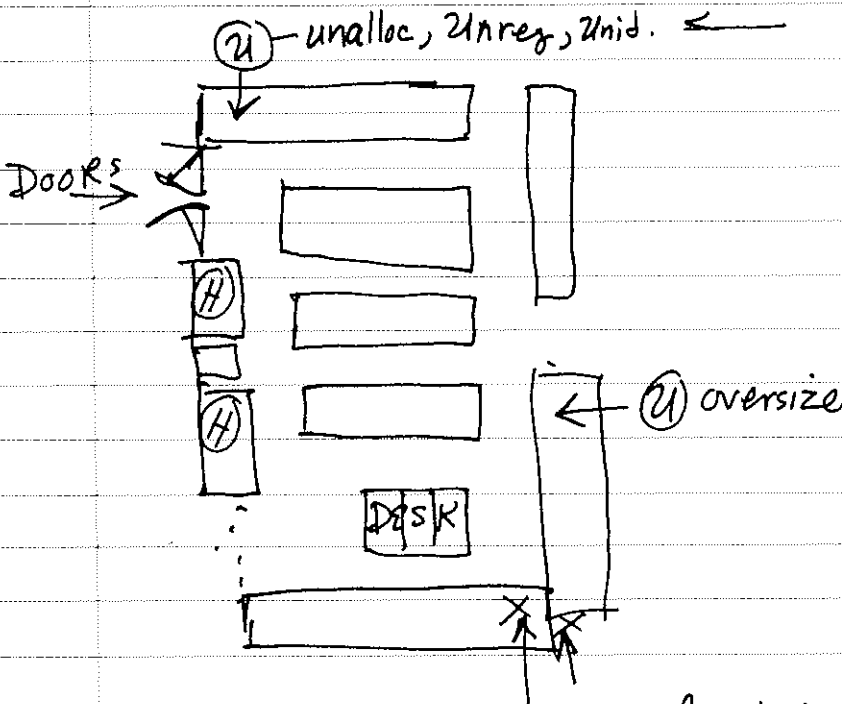 U - unalloc, Unreg, Unid. ←
DOORS →
H
H
← U oversize
DESK
X X